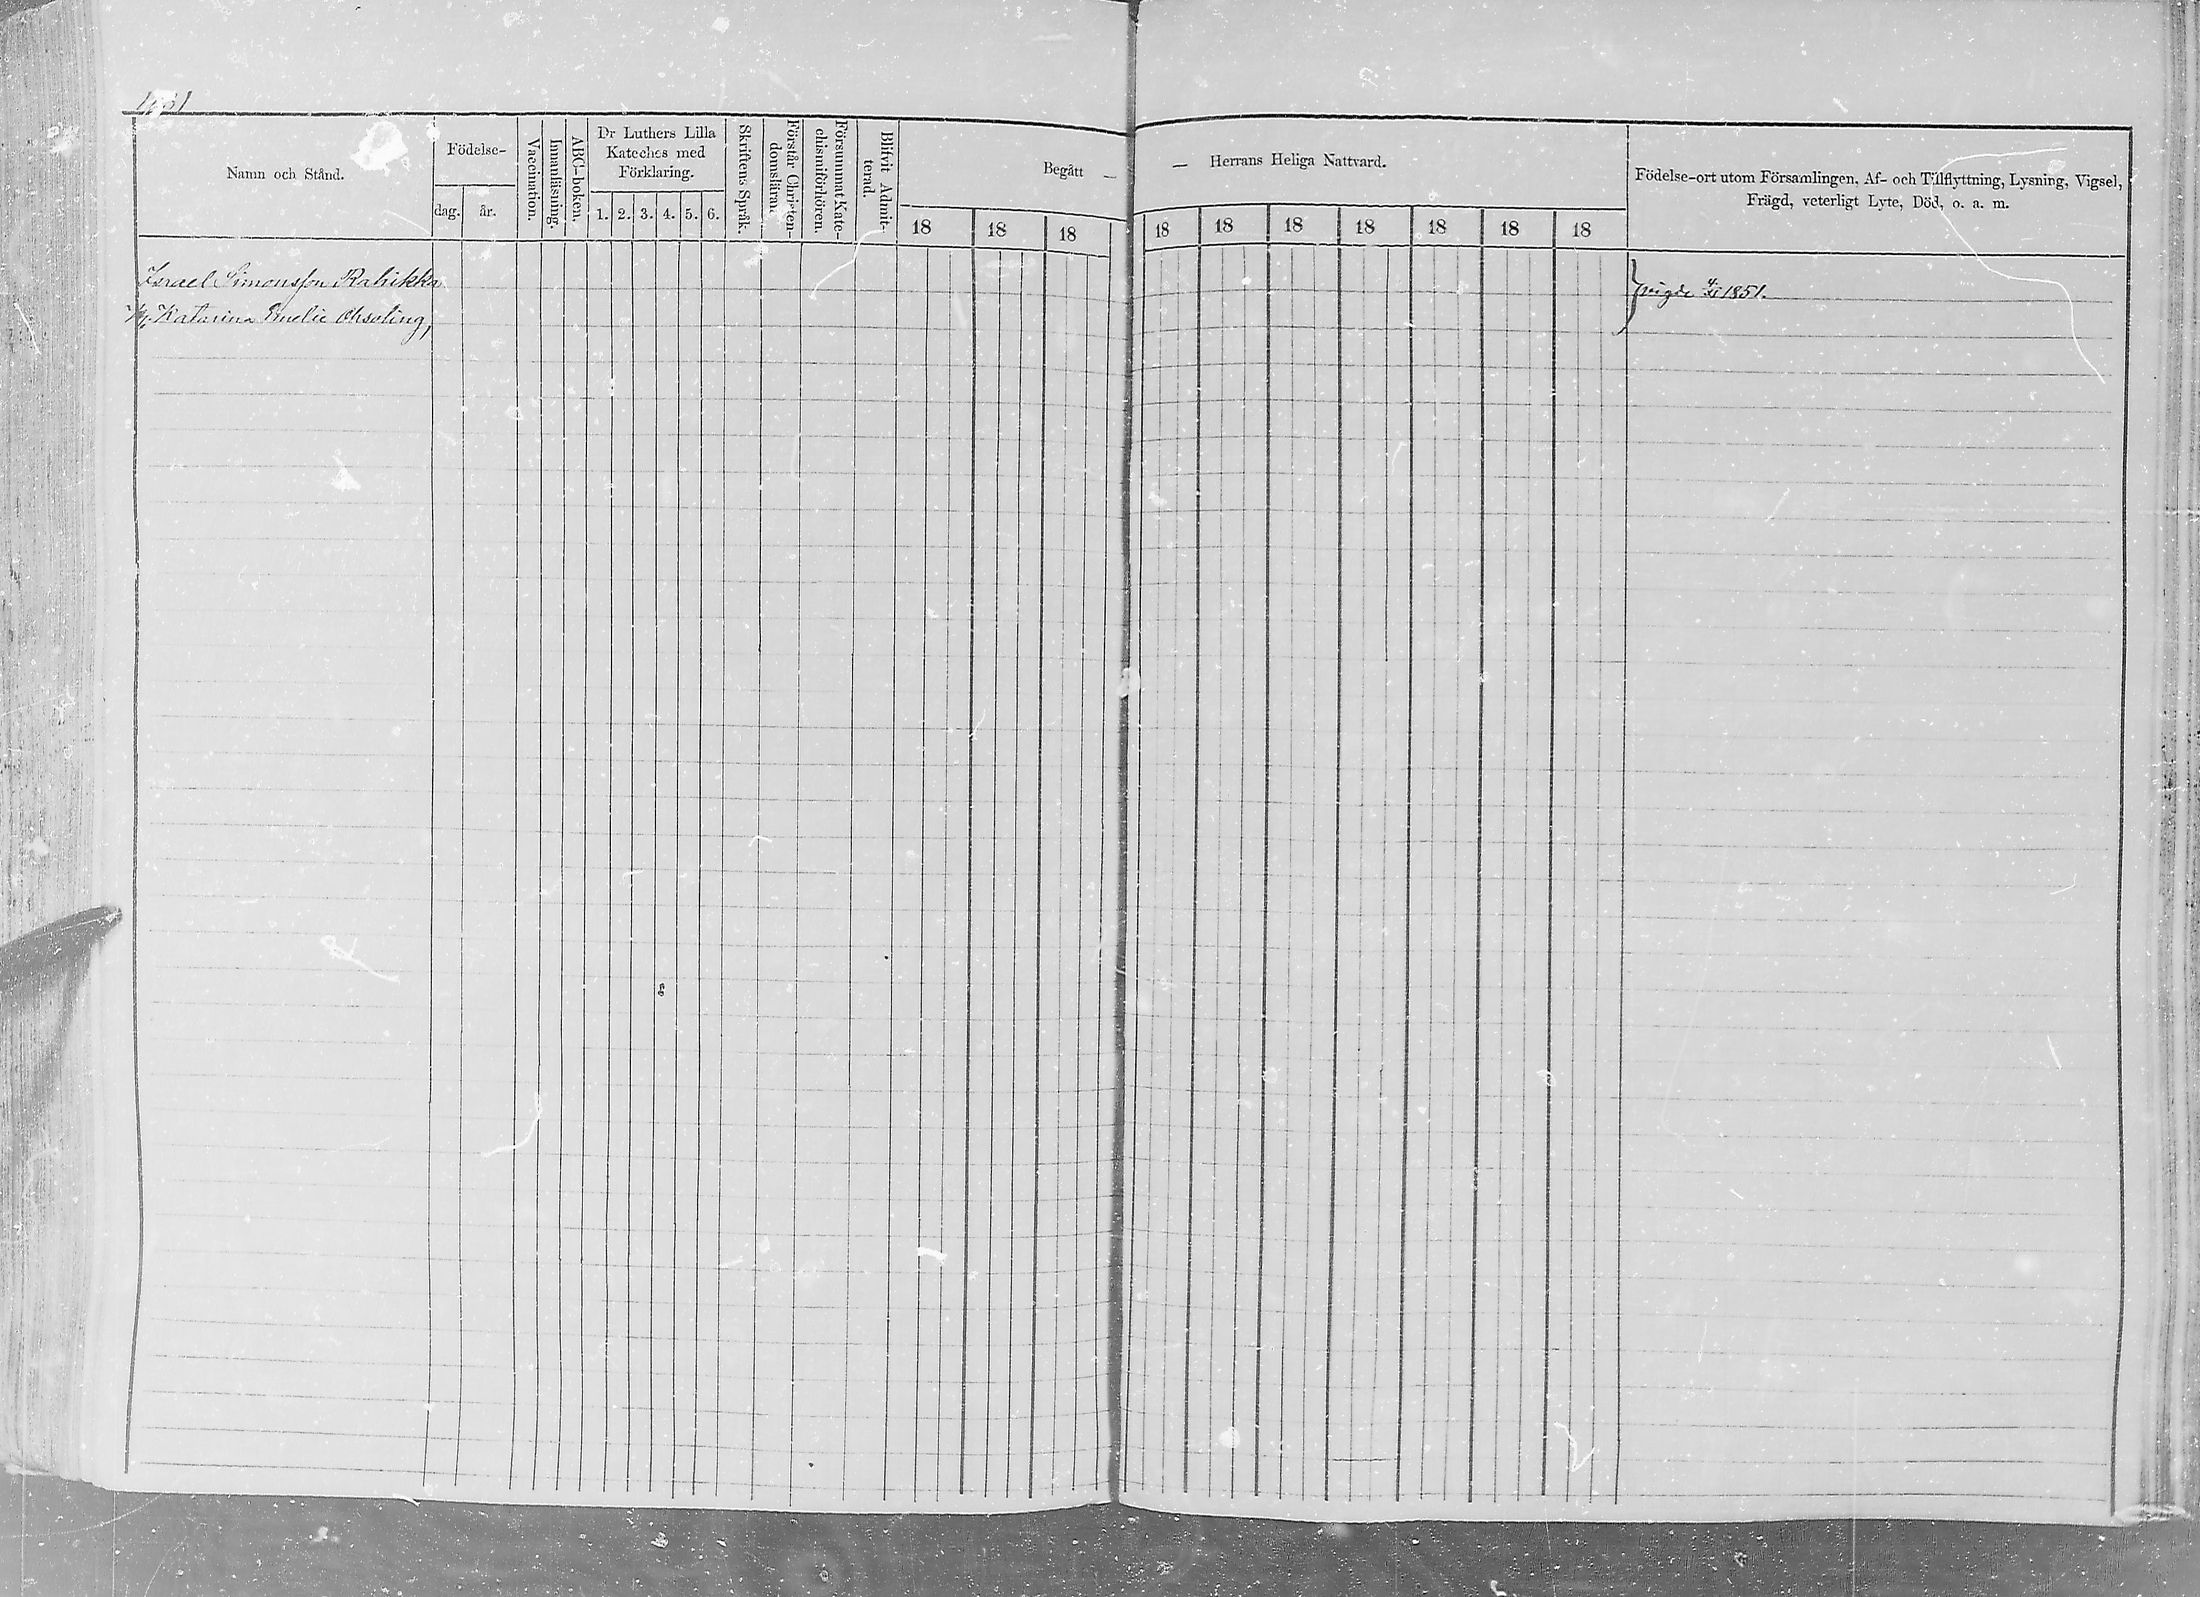 Namn och Stånd.
Födelse-
dag.
år.
Vaccination.
Innanläsning.
ABC-boken.
Dr Luthers Lilla
Kateches med
Förklaring.
1. 2. 3. 4. 5. 6.
Skriftens Språk.
Förstår Christen-
domsläran.
Försummat Kate-
chismiförhören.
Blifvit Admit-
terad.
Begått —
18 18 18
— Herrans Heliga Nattvard.
18 18 18 18 18 18 18
Födelse-ort utom Församlingen, Af- och Tillflyttning, Lysning, Vigsel,
Frägd, veterligt Lyte, Död, o. a. m.
Israel Simonsson Rabikka
Katarina Emelie
vigde 1851.